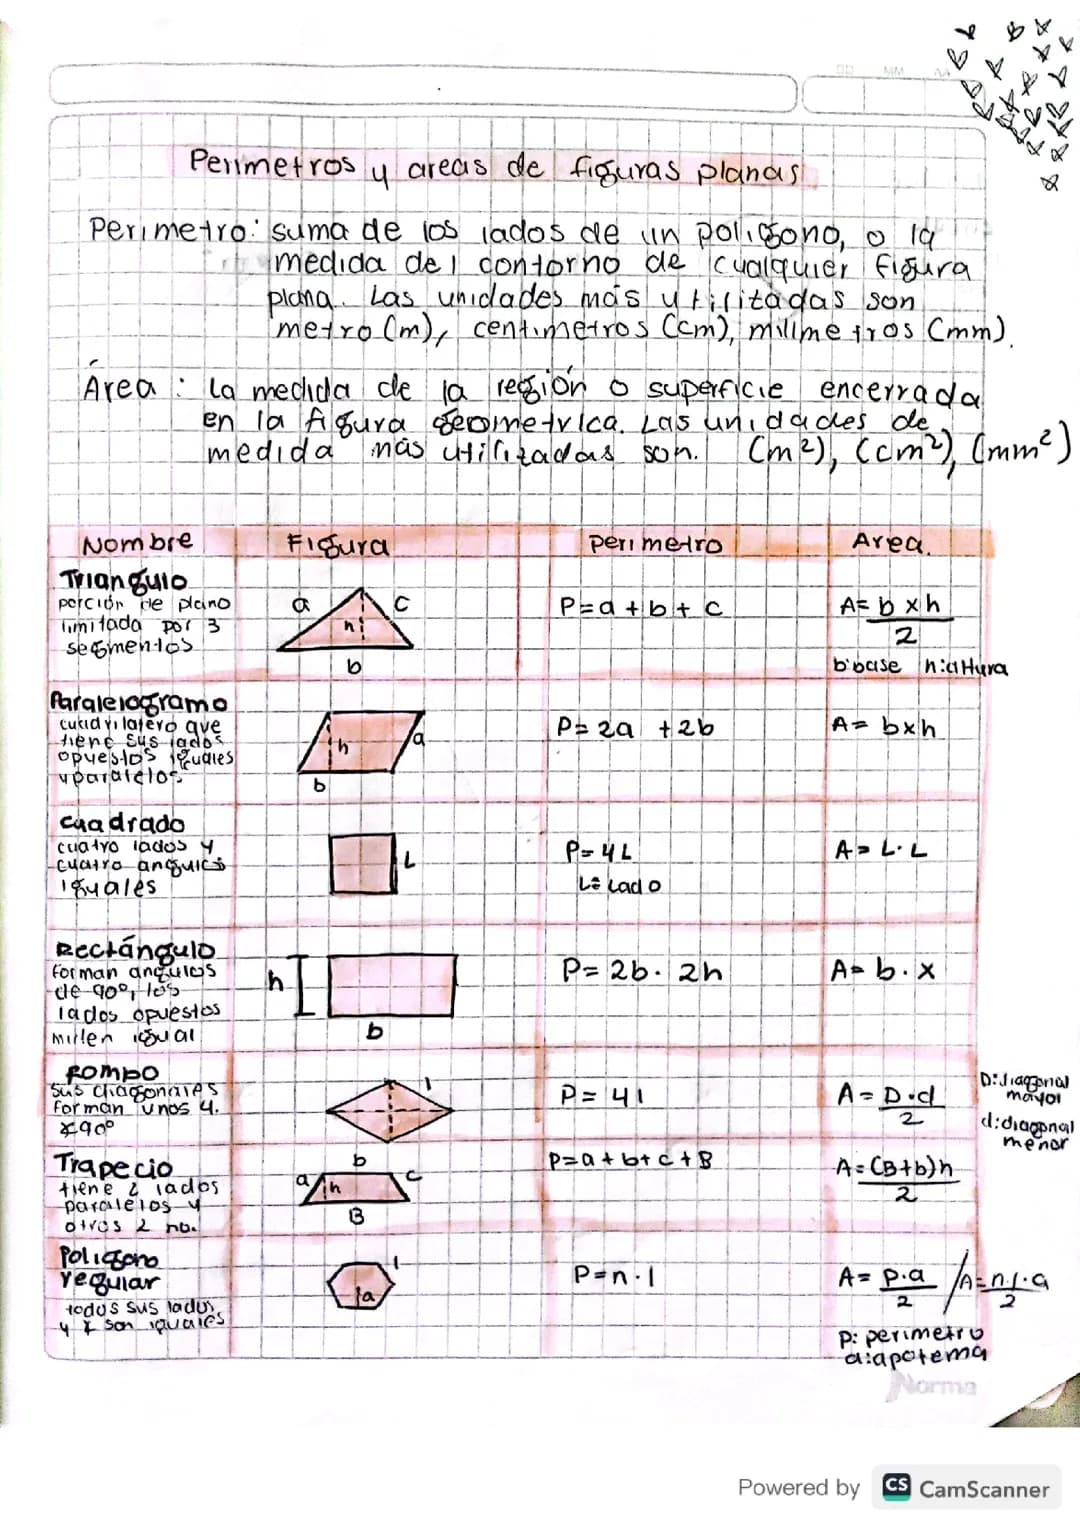 DD MM AA
Perimetros y areas de figuras planas
Perimetro: suma de los lados de un poligono, o la
medida del contorno de cualquier figura
plana. Las unidades más utilitadas son
metro (m), centimetros (cm), milimetros (mm).
Área : la medida de la región o superficie encerrada
en la figura geometrica. Las unidades de
medida más utilizadas son. (m²), (cm²), (mm²)
Nombre Figura Perimetro Area.
Triangulo
porción de plano
limitada por 3
segmentos
a c
h
b
P=a+b+c
A= b x h
2
b:base h:altura
Paralelogramo
cuadrilatero que
tiene sus lados
opuestos iguales
y paralelos
h a
b
P= 2a +2b
A= bxh
Cuadrado
cuatro lados y
cuatro angulos
iguales
L
P= 4L
L= Lado
A= L·L
Rectángulo
forman angulos
de 90°, los
lados opuestos
miden igual
h
b
P= 2b· 2h
A= b.x
Rombo
sus diagonales
forman unos 4.
∡90°
l
P= 4l
A= D·d
2
D:diagonal
mayor
d:diagonal
menor
Trapecio
tiene 2 lados
paralelos y
otros 2 no.
b
a h c
B
P=a+b+c+B
A=(B+b)h
2
Poligono
regular
todos sus lados
y ∡ son iguales
l
a
P=n·l
A= p.a / A=n.l.a
2 2
p: perimetro
a:apotema
Norma
Powered by CS CamScanner